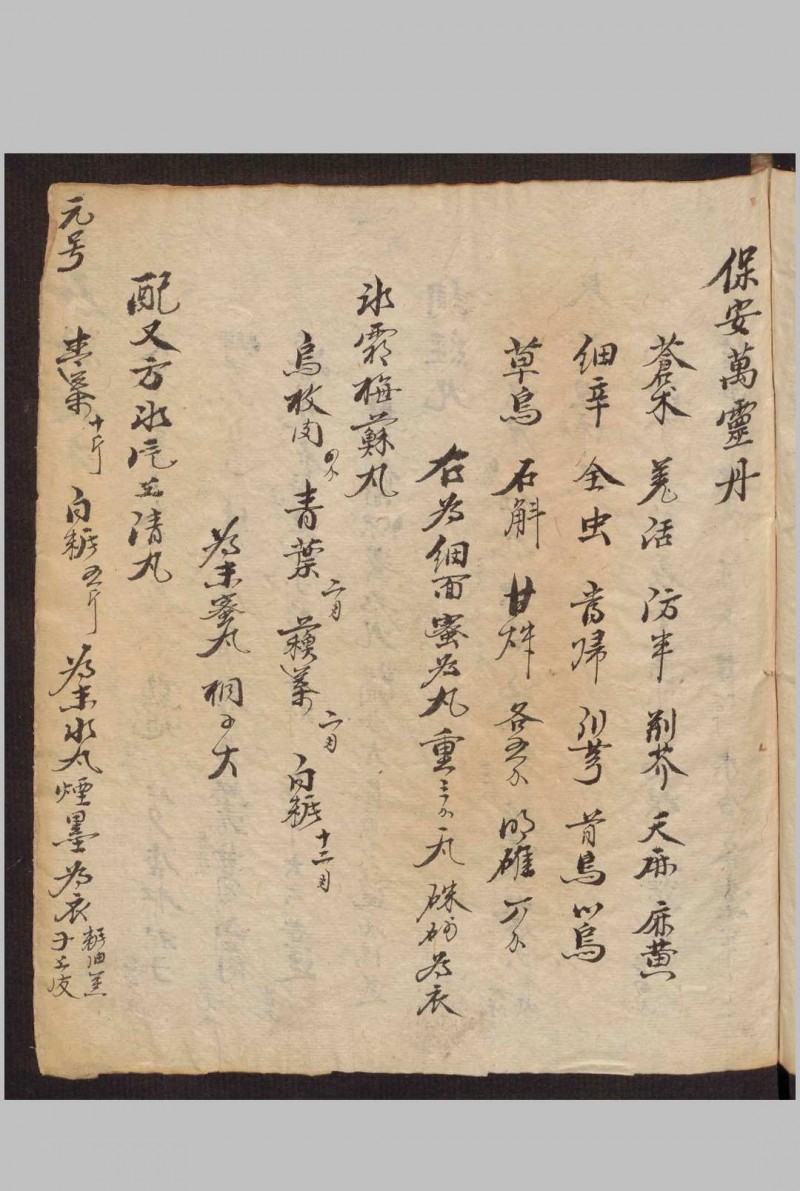 保安萬靈丹
蒼术 羌活 防半 荊芥 天麻 麻黄
细辛 全虫 當歸 川芎 首烏 川烏
草烏 石斛 甘艸 各五分 明雄 六分
右為细面蜜為丸重三分 丸 硃砂為衣
冰霜梅蘇丸
烏枚肉 四分 青葉 二月 蘓葉 二月 白糖 十二月
為末蜜丸 桐子大
配又方冰片上清丸
青葉 十斤 白糖 五斤 為末水丸煙墨為衣
元号